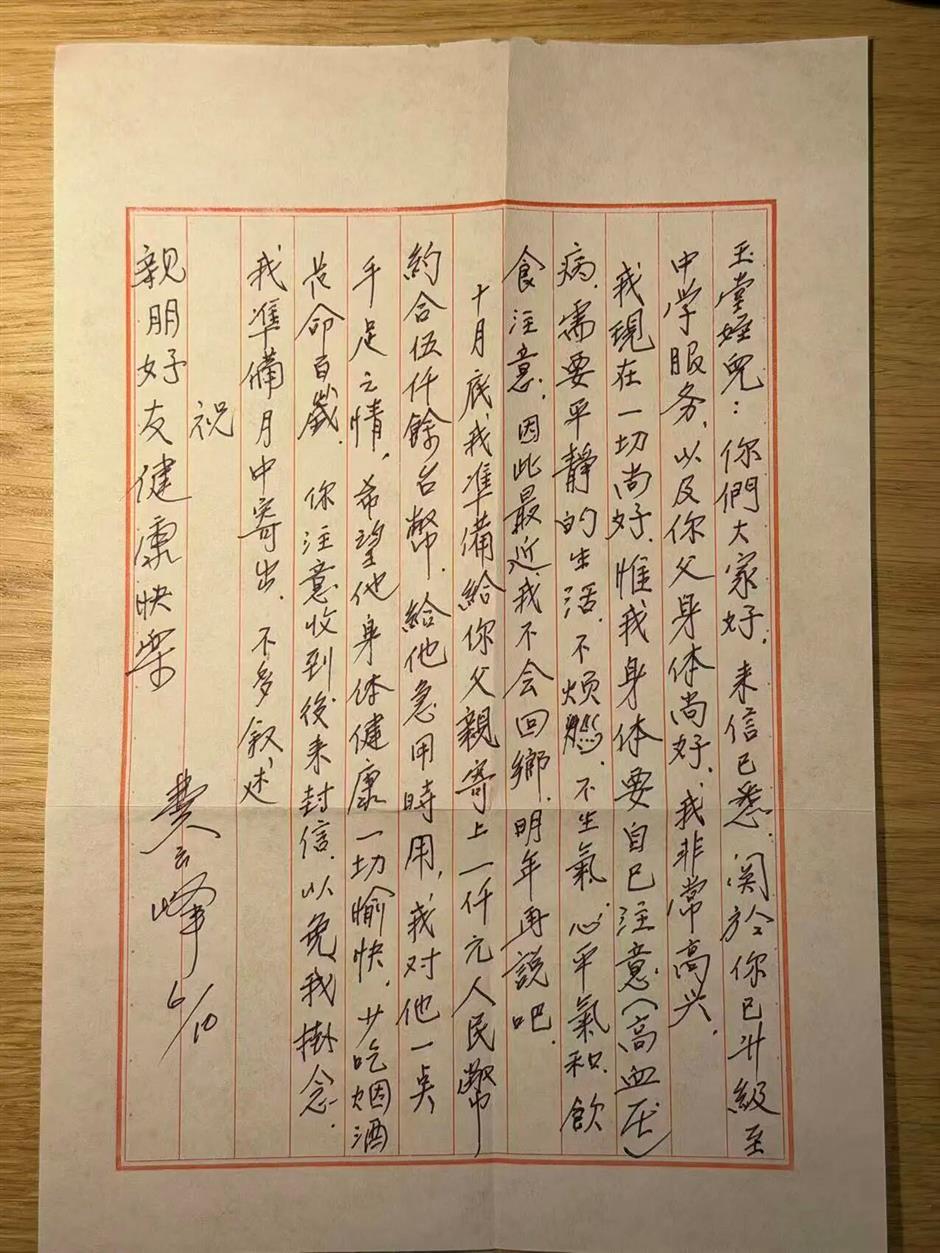 玉堂姪兒：你們大家好．来信已悉．関於你已升級至
中学服务．以及你父身体尚好．我非常高兴．
我現在一切尚好．惟我身体要自已注意（高血压）
病．需要平靜的生活．不烦燃．不生氣．心平氣和．飲
食注意．因此最近我不会回鄉．明年再說吧．
十月底我準備給你父親寄上一仟元人民幣
約合伍仟餘台幣．給他急用時用，我对他一点
手足之情，希望他身体健康一切愉快，少吃烟酒
长命百歲．你注意收到後来封信．以免我掛念．
我準備月中寄出．不多叙述
祝
親朋好友健康快樂
費云峰 6/10